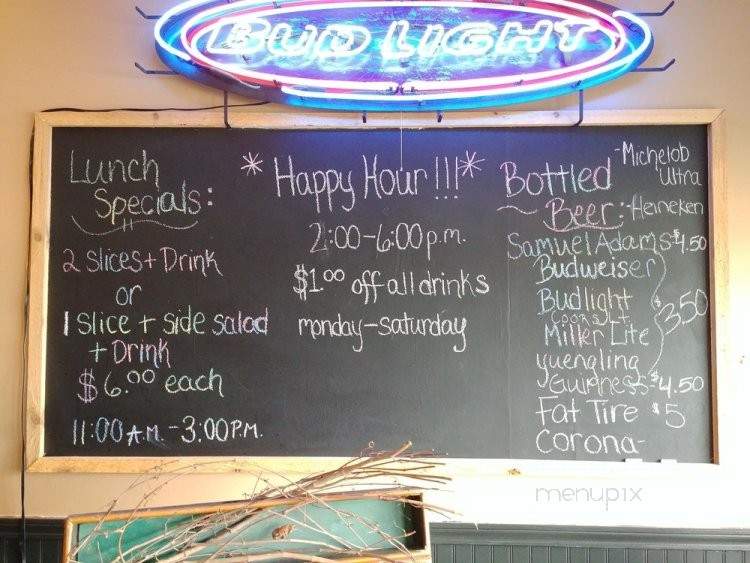 BUD LIGHT
Lunch
Specials:
2 slices + Drink
or
1 slice + side salad
+ Drink
$6.00 each
11:00 A.M. - 3:00 P.M.
* Happy Hour!!! *
2:00-6:00 p.m.
$1.00 off all drinks
monday-saturday
Bottled
Beer:
-Michelob
Ultra
-Heineken
Samuel Adams-$4.50
Budweiser
Budlight
Coors Lt
Miller Lite
yuengling
$3.50
Guinness-$4.50
Fat Tire $5
Corona-
menupix